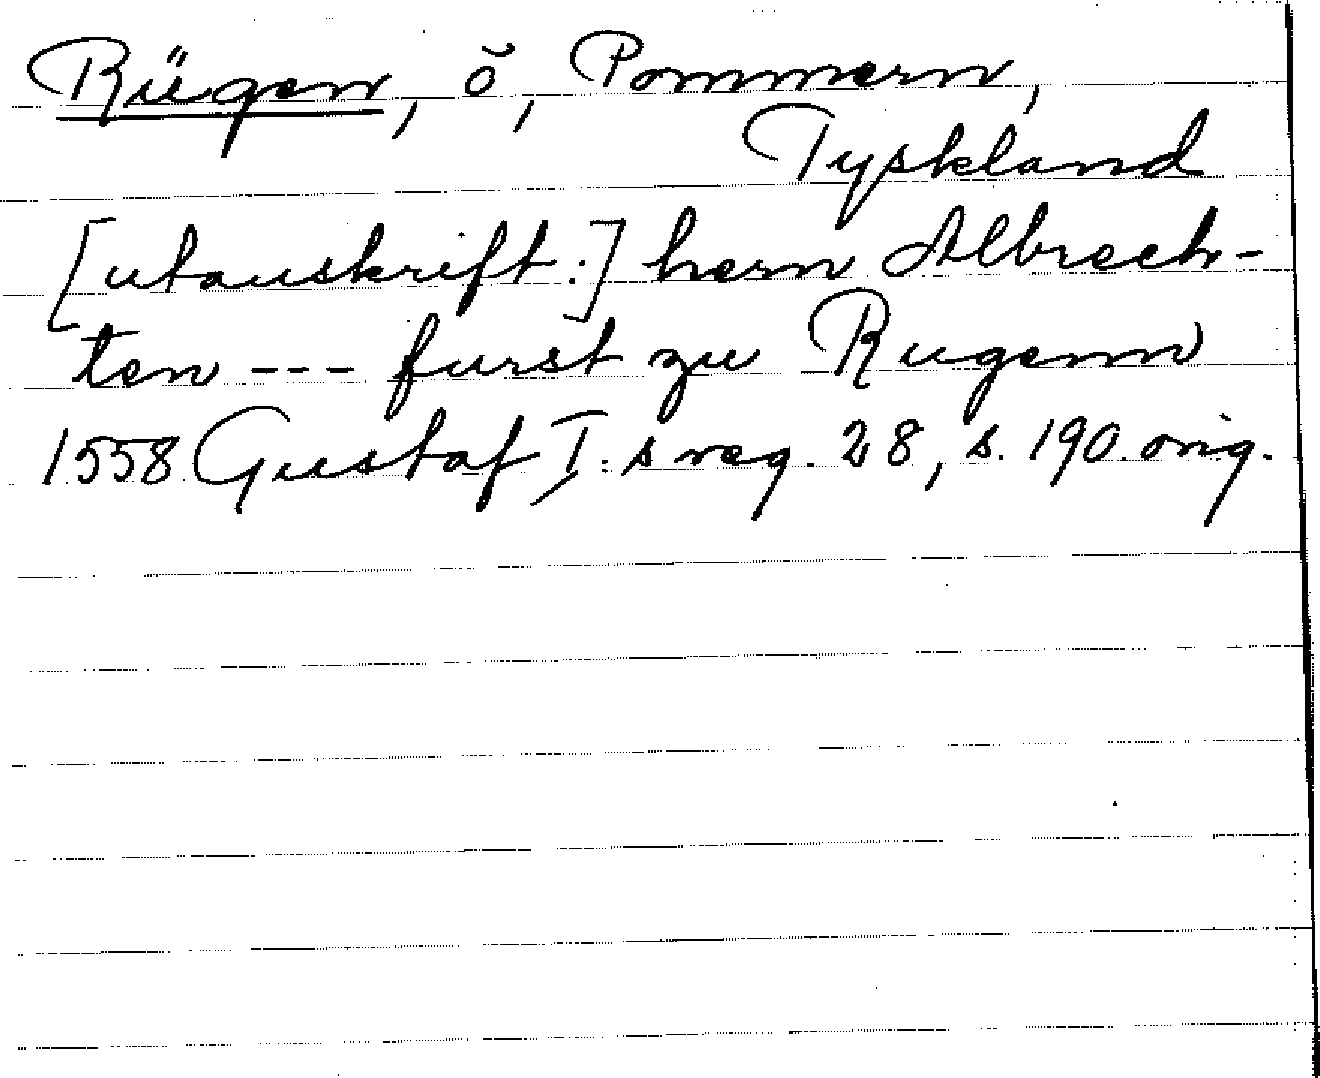 Rügen, ö, Pommern,
Tyskland
[utanskrift:] hern Albrech-
ten --- furst zu Rugenn
1558 Gustaf I:s reg. 28, s. 190 orig.